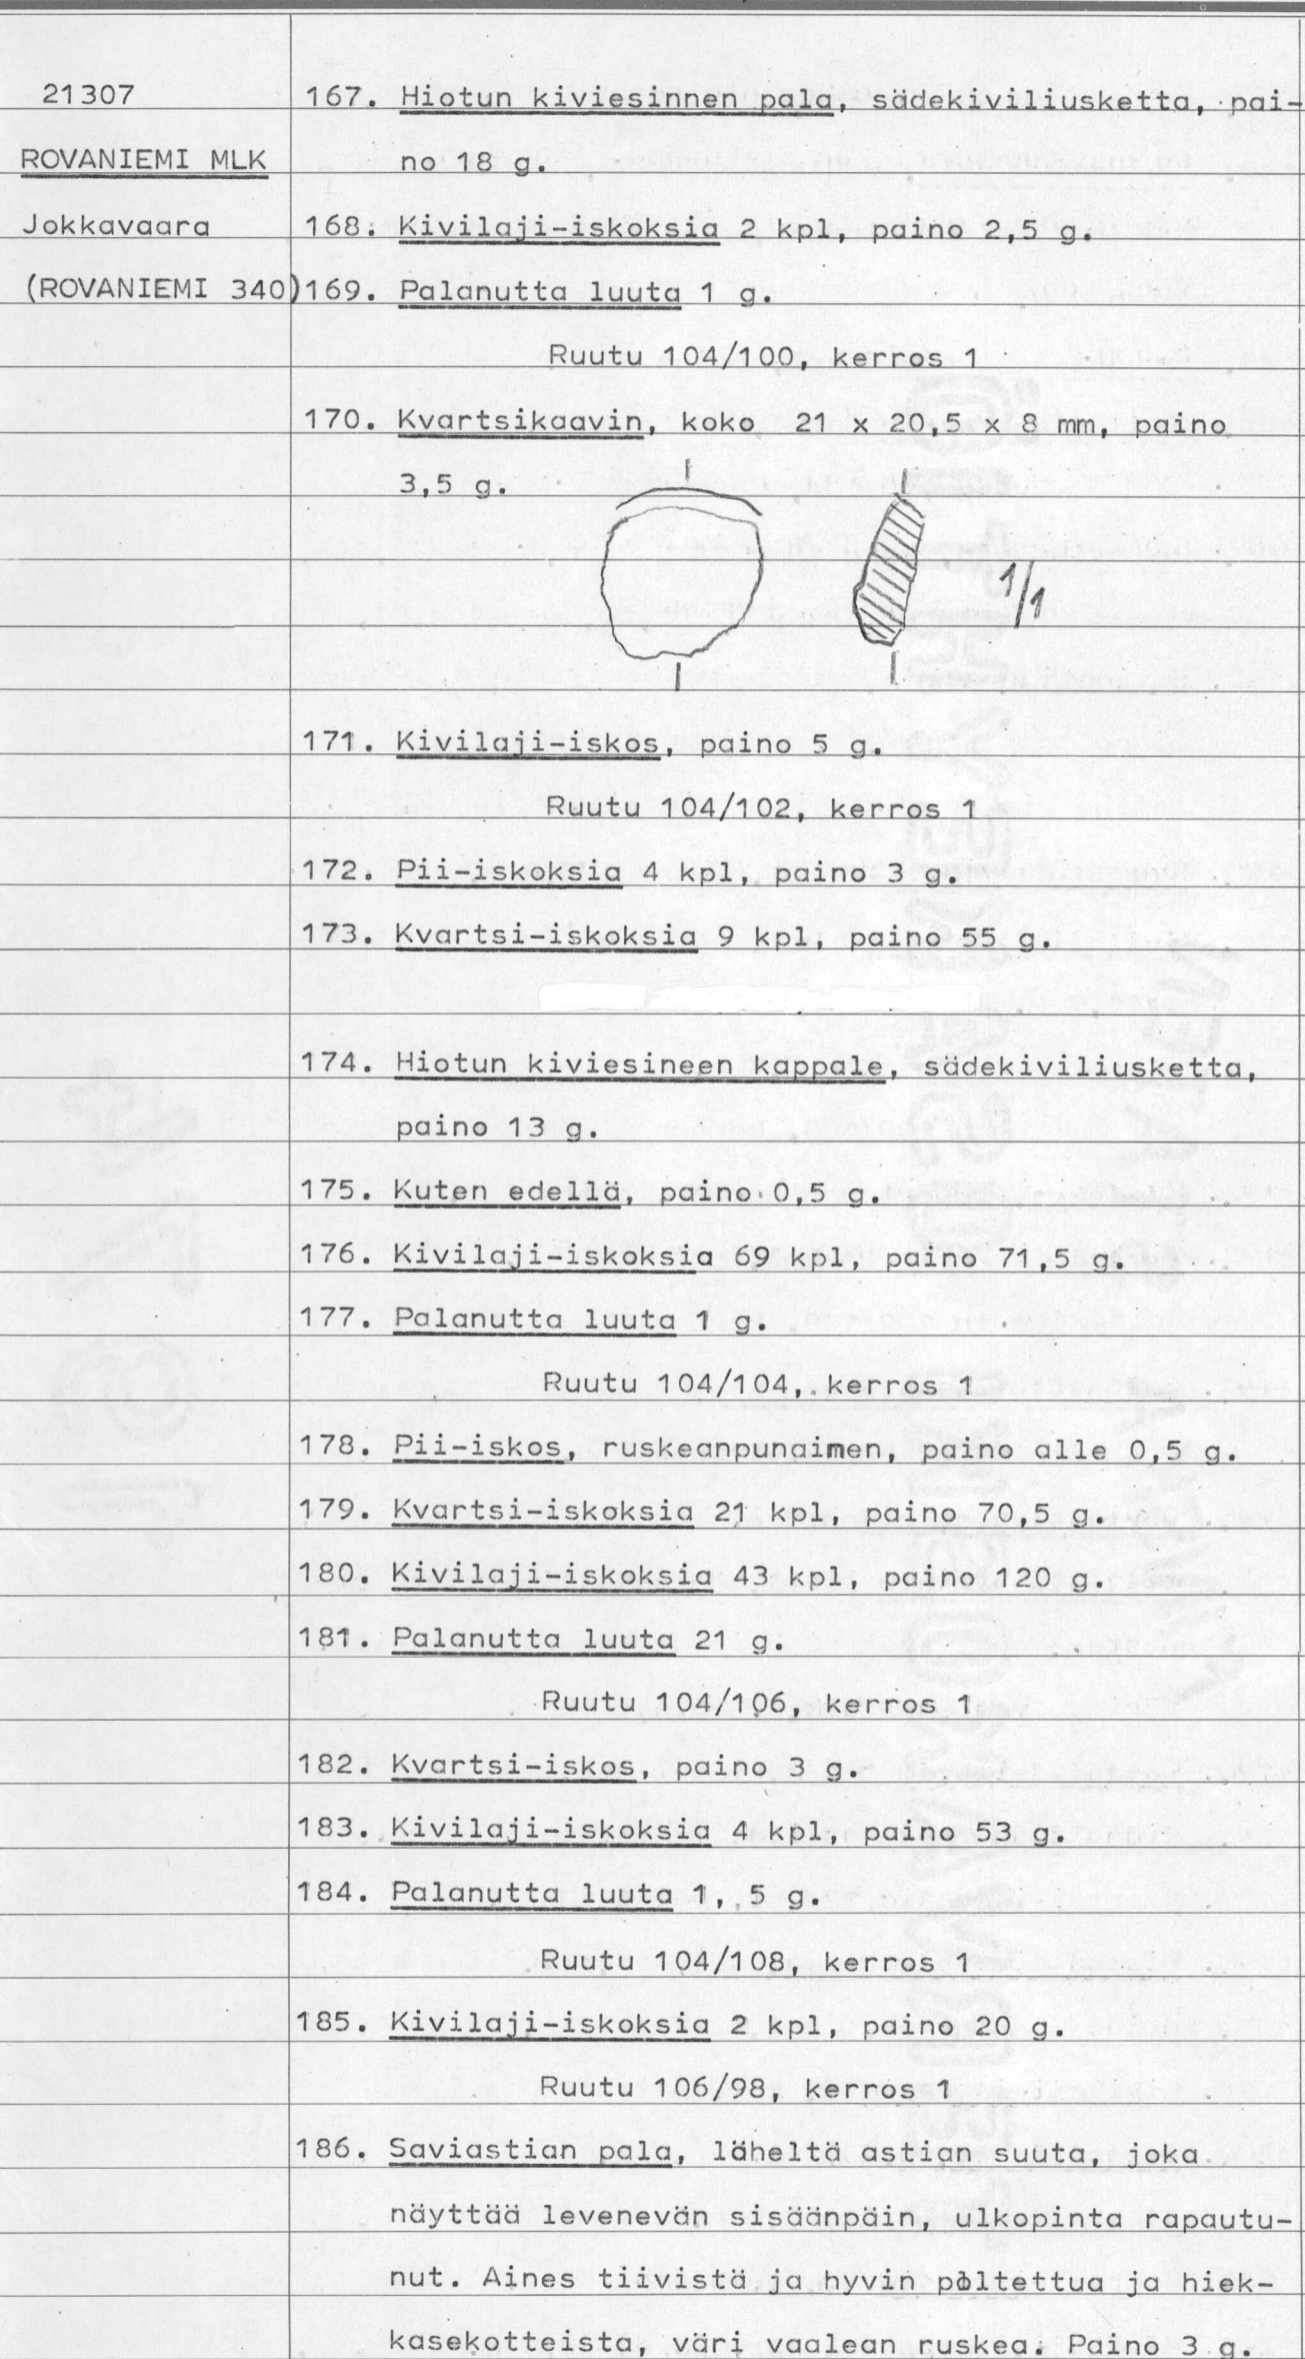 21307
167. Hiotun kiviesinnen pala, sädekiviliusketta, pai-
ROVANIEMI MLK
no 18 g.
Jokkavaara
168. Kivilaji-iskoksia 2 kpl, paino 2,5 g.
(ROVANIEMI 340)
169. Palanutta luuta 1 g.
Ruutu 104/100, kerros 1
170. Kvartsikaavin, koko 21 x 20,5 x 8 mm, paino
3,5 g.
1/1
171. Kivilaji-iskos, paino 5 g.
Ruutu 104/102, kerros 1
172. Pii-iskoksia 4 kpl, paino 3 g.
173. Kvartsi-iskoksia 9 kpl, paino 55 g.
174. Hiotun kiviesineen kappale, sädekiviliusketta,
paino 13 g.
175. Kuten edellä, paino 0,5 g.
176. Kivilaji-iskoksia 69 kpl, paino 71,5 g.
177. Palanutta luuta 1 g.
Ruutu 104/104, kerros 1
178. Pii-iskos, ruskeanpunaimen, paino alle 0,5 g.
179. Kvartsi-iskoksia 21 kpl, paino 70,5 g.
180. Kivilaji-iskoksia 43 kpl, paino 120 g.
181. Palanutta luuta 21 g.
Ruutu 104/106, kerros 1
182. Kvartsi-iskos, paino 3 g.
183. Kivilaji-iskoksia 4 kpl, paino 53 g.
184. Palanutta luuta 1, 5 g.
Ruutu 104/108, kerros 1
185. Kivilaji-iskoksia 2 kpl, paino 20 g.
Ruutu 106/98, kerros 1
186. Saviastian pala, läheltä astian suuta, joka
näyttää levenevän sisäänpäin, ulkopinta rapautu-
nut. Aines tiivistä ja hyvin poltettua ja hiek-
kasekotteista, väri vaalean ruskea. Paino 3 g.